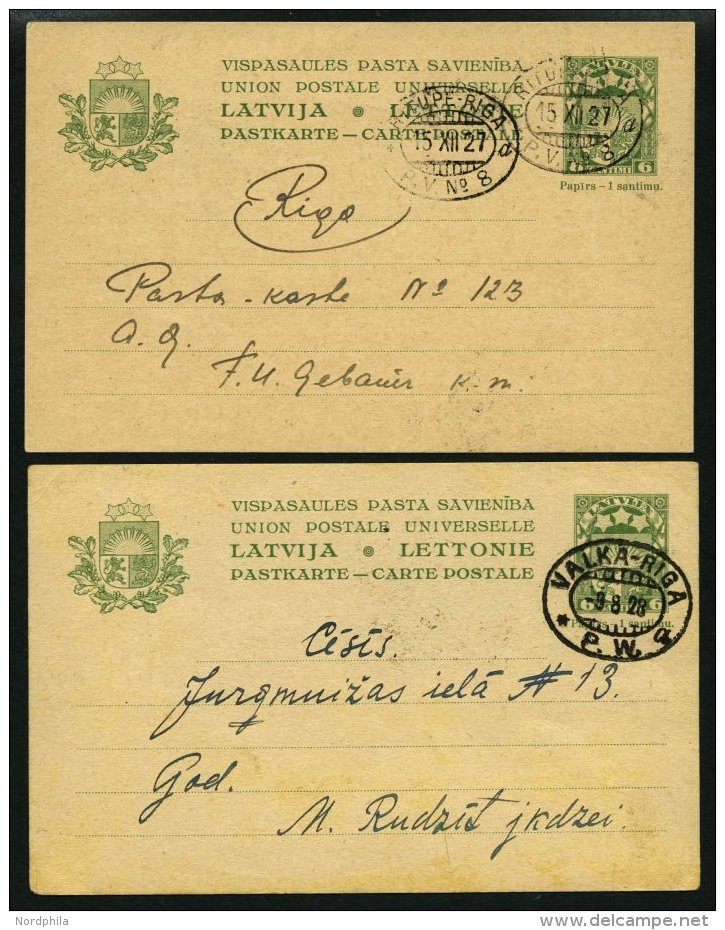 VISPASAULES PASTA SAVIENĪBA
UNION POSTALE UNIVERSELLE
LATVIJA LETTONIE
PASTKARTE — CARTE POSTALE
LATVIJA
6 6
Papīrs – 1 santimu.
UPE-RIGA
15 XII 27
a
P.V. № 8
15 XII 27
a
P.V. № 8
Riga
Pasta-kaste № 123
F.U. Gebauer k-m.
VISPASAULES PASTA SAVIENĪBA
UNION POSTALE UNIVERSELLE
LATVIJA LETTONIE
PASTKARTE — CARTE POSTALE
LATVIJA
6 6
Papīrs – 1 santimu.
VALKA-RIGA
-9 8 28
P.W. a
Cēsīs.
Jurgmuižas ielā # 13.
God.
M. Rudzīt jkdzei.
Nordphila
delcampe.net